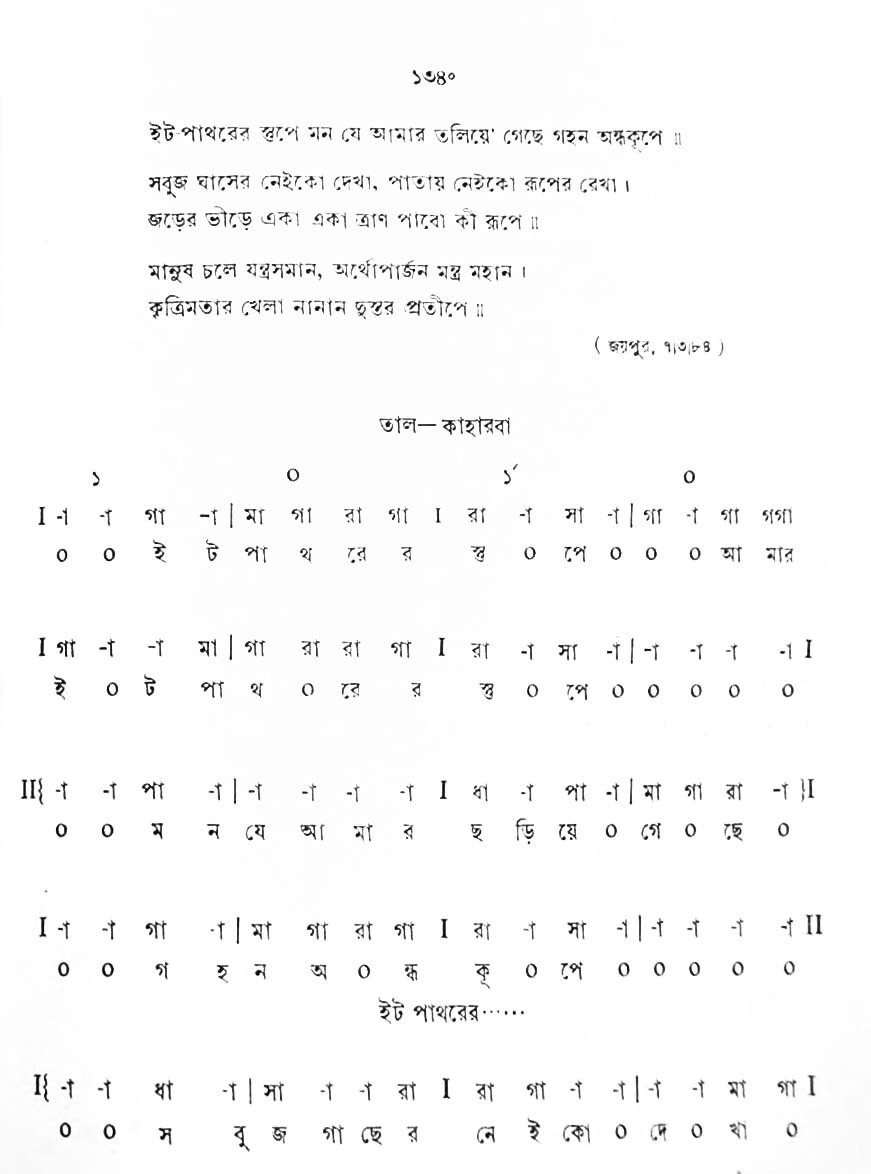 ১৩৪০
ইট-পাথরের স্তুপে মন যে আমার তলিয়ে' গেছে গহন অন্ধকূপে ॥
সবুজ ঘাসের নেইকো দেখা, পাতায় নেইকো রূপের রেখা ।
জড়ের ভীড়ে একা একা ত্রাণ পাবো কী রূপে ॥
মানুষ চলে যন্ত্রসমান, অর্থোপার্জন মন্ত্র মহান ।
কৃত্রিমতার খেলা নানান দুস্তর প্রতীপে ॥
( জয়পুর, ৭।৩।৮৪ )
তাল— কাহারবা
১ ০ ১´ ০
I -া -া গা -া | মা গা রা গা I রা -া সা -া | গা -া গা গগা
০ ০ ই ট পা থ রে র স্তু ০ পে ০ ০ ০ আ মার
I গা -া -া মা | গা রা রা গা I রা -া সা -া | -া -া -া -া I
ই ০ ট পা থ ০ রে র স্তু ০ পে ০ ০ ০ ০ ০
II{ -া -া পা -া | -া -া -া -া I ধা -া পা -া | মা গা রা -া }I
০ ০ ম ন যে আ মা র ছ ড়ি য়ে ০ গে ০ ছে ০
I -া -া গা -া | মা গা রা গা I রা -া সা -া | -া -া -া -া II
০ ০ গ হ ন অ ০ ন্ধ কূ ০ পে ০ ০ ০ ০ ০
ইট পাথরের······
I{ -া -া ধা -া | সা -া -া রা I রা গা -া -া | -া -া মা গা I
০ ০ স বু জ গা ছে র নে ই কো ০ দে ০ খা ০